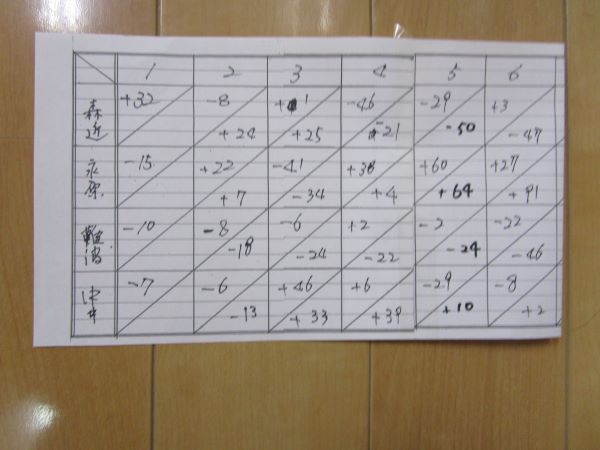 1 2 3 4 5 6
森近 +32 -8 +1 -46 -29 +3
+24 +25 -21 -50 -47
永原 -15 +22 -41 +38 +60 +27
+7 -34 +4 +64 +91
難波 -10 -8 -6 +2 -2 -22
-18 -24 -22 -24 -46
-7 -6 +46 +6 -29 -8
-13 +33 +39 +10 +2